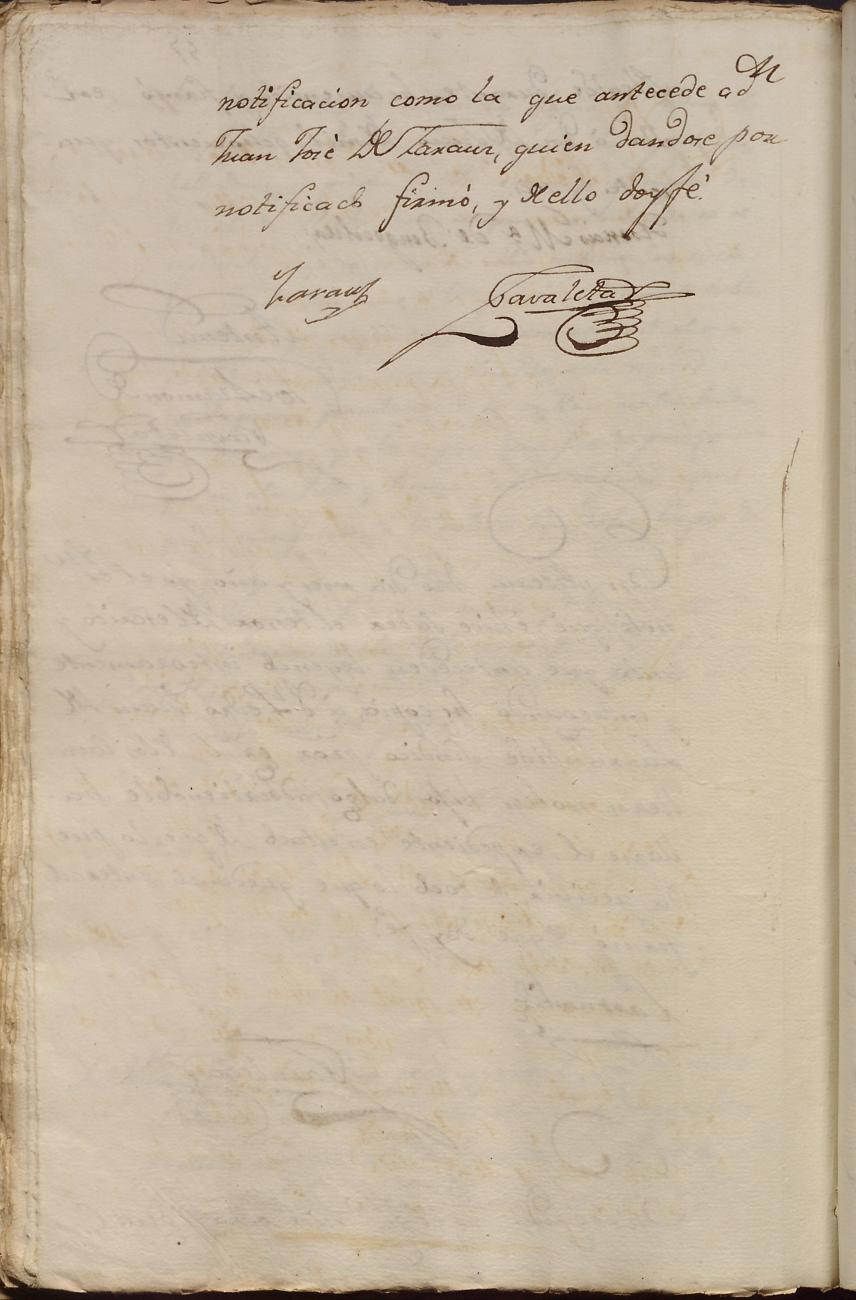 notificacion como la que antecede a dn
Juan José de Zarauz, quien dandose por
notificado firmó, y de ello doy fé.
Zarauz Zavaleta